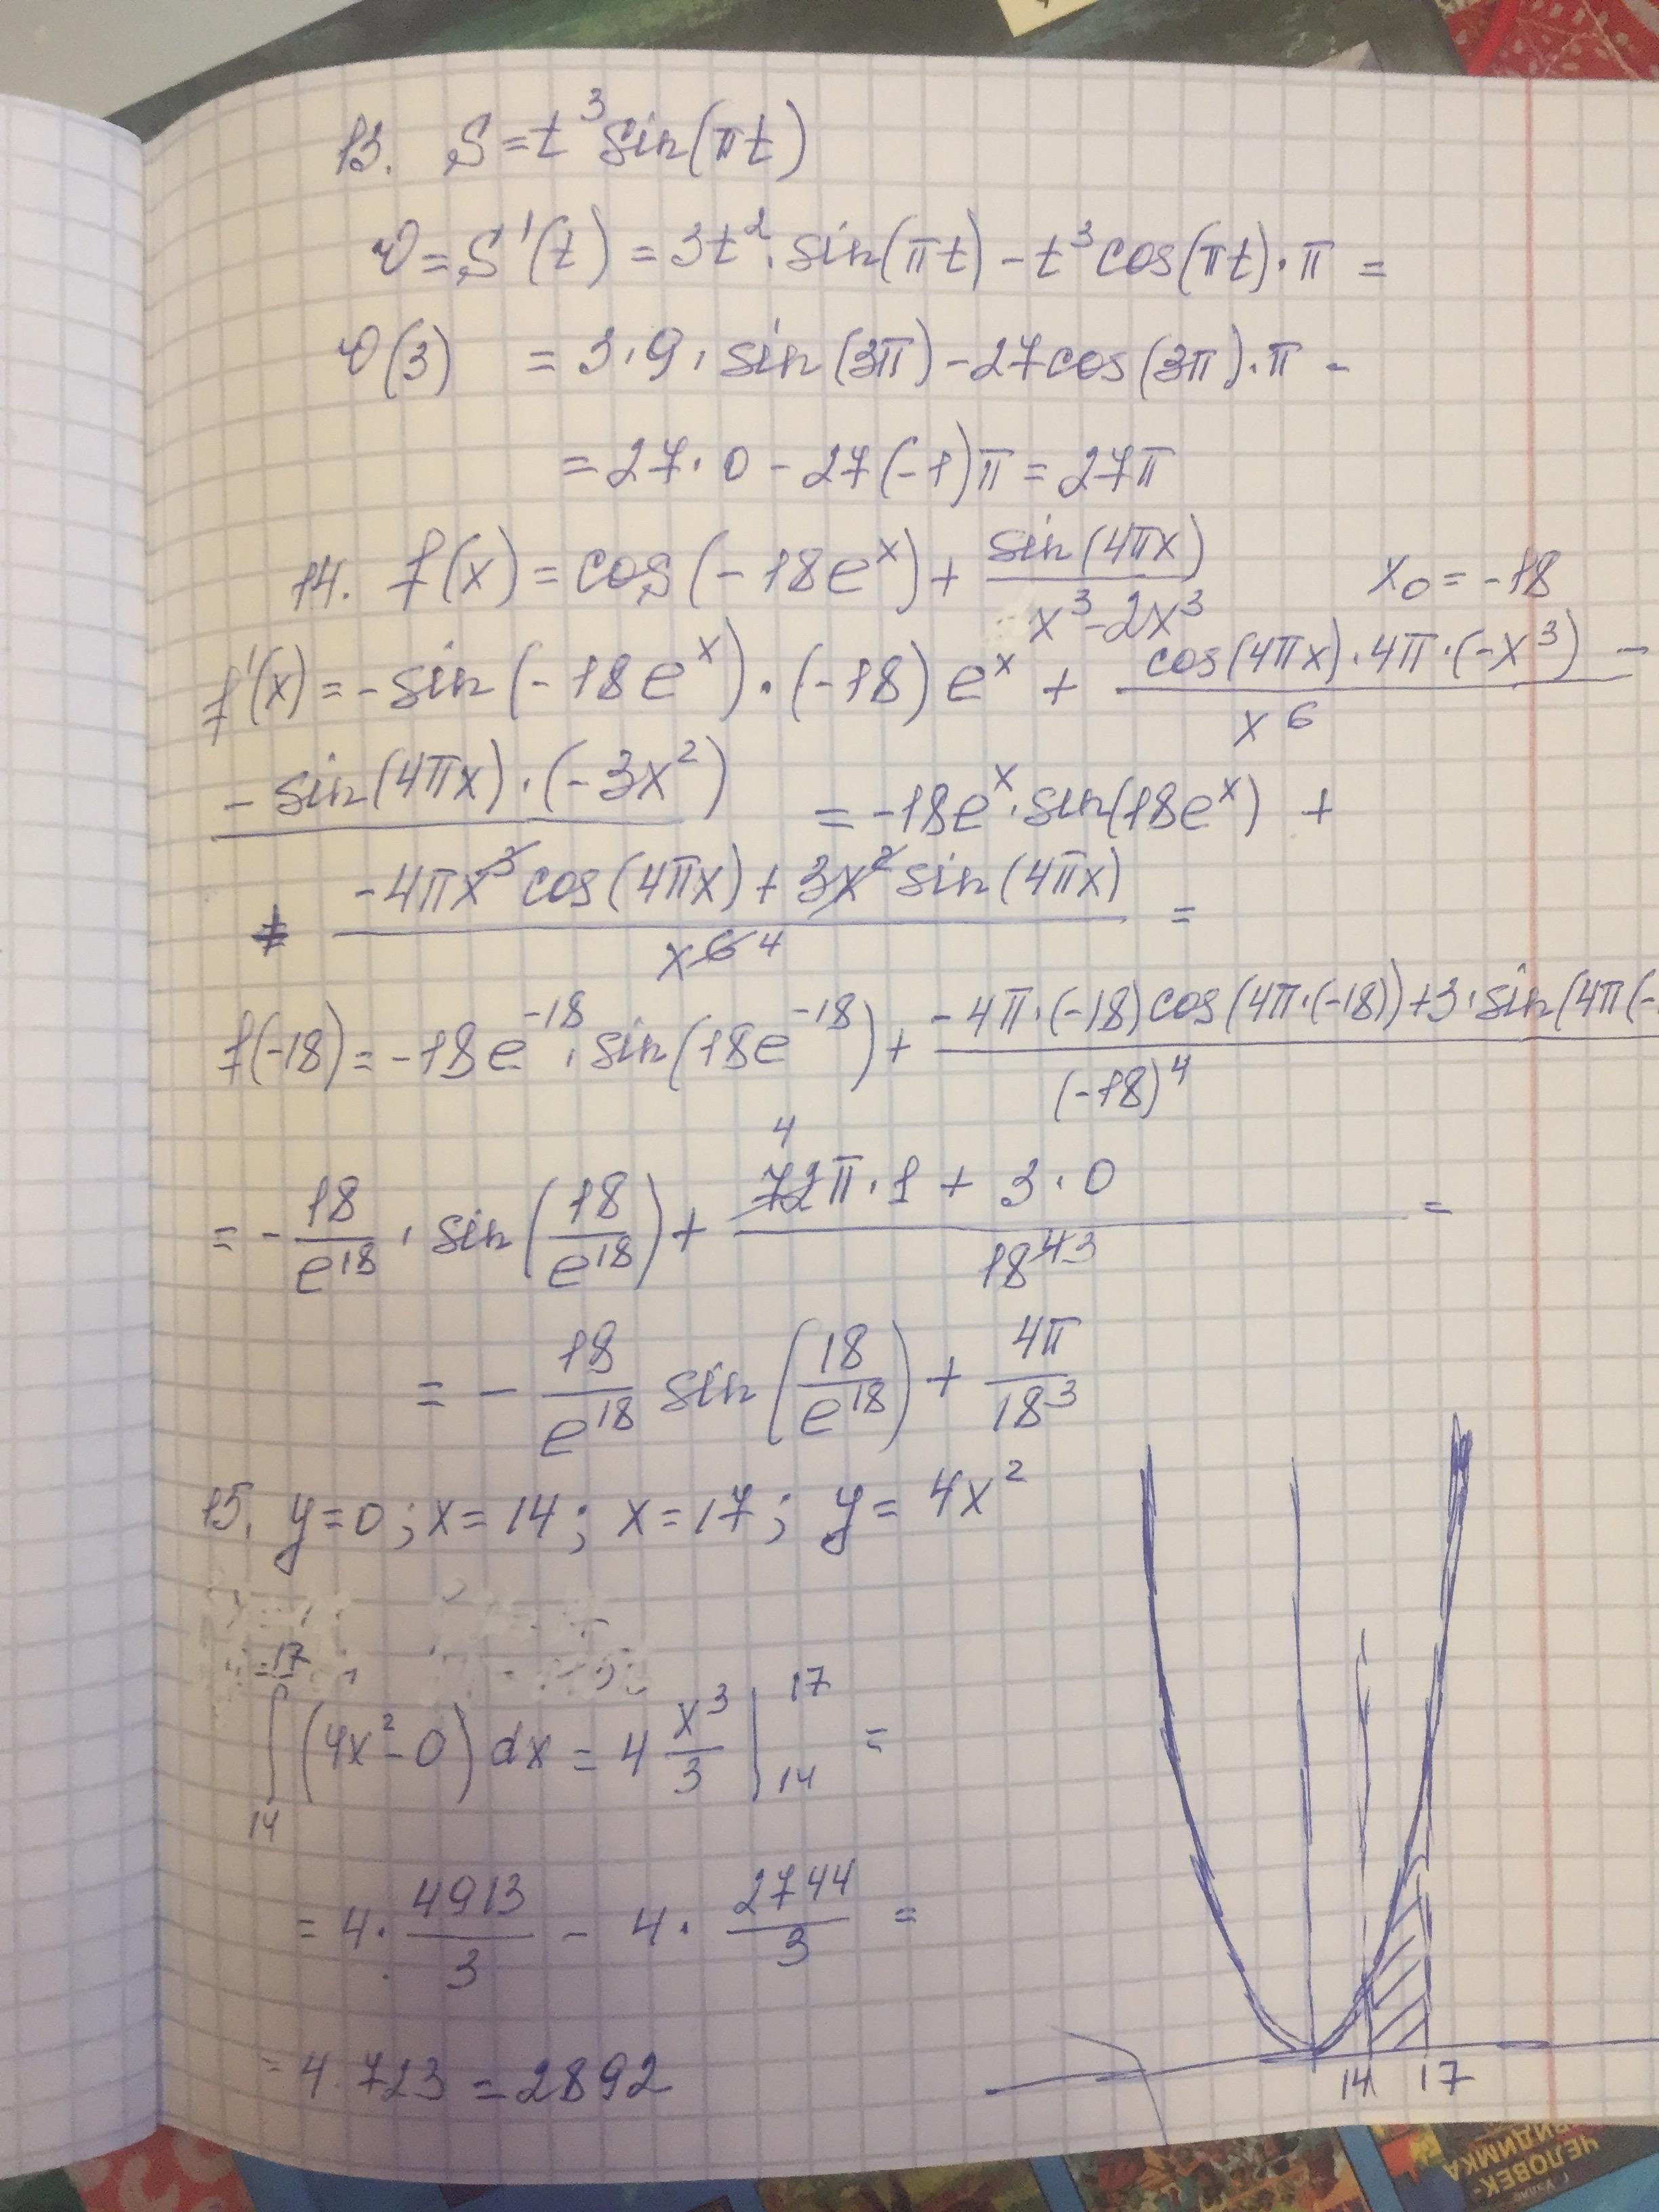 13. S = t³ sin(πt)
v = S'(t) = 3t² · sin(πt) - t³ cos(πt) · π =
v(3) = 3 · 9 · sin(3π) - 27 cos(3π) · π -
= 27 · 0 - 27(-1)π = 27π
14. f(x) = cos(-18e^x) + sin(4πx)/(x³-2x³) x₀ = -18
f'(x) = -sin(-18e^x) · (-18)e^x + (cos(4πx) · 4π · (-x³) -)/x⁶
(- sin(4πx) · (-3x²)) = -18e^x · sin(18e^x) +
+ (-4πx³ cos(4πx) + 3x² sin(4πx))/x⁶ ⁴ =
f(-18) = -18e^-18 · sin(18e^-18) + (-4π · (-18) cos(4π · (-18)) + 3 · sin(4π(-)/(-18)⁴
= - 18/e^18 · sin(18/e^18) + (72 4 π · 1 + 3 · 0)/18⁴ ³ =
= - 18/e^18 sin(18/e^18) + 4π/18³
15. y = 0; x = 14; x = 17; y = 4x²
∫₁₄^17 (4x² - 0) dx = 4 x³/3 |₁₄^17 =
= 4 · 4913/3 - 4 · 2744/3 =
= 4 · 723 = 2892
14 17
ЧЕЛОВЕК-